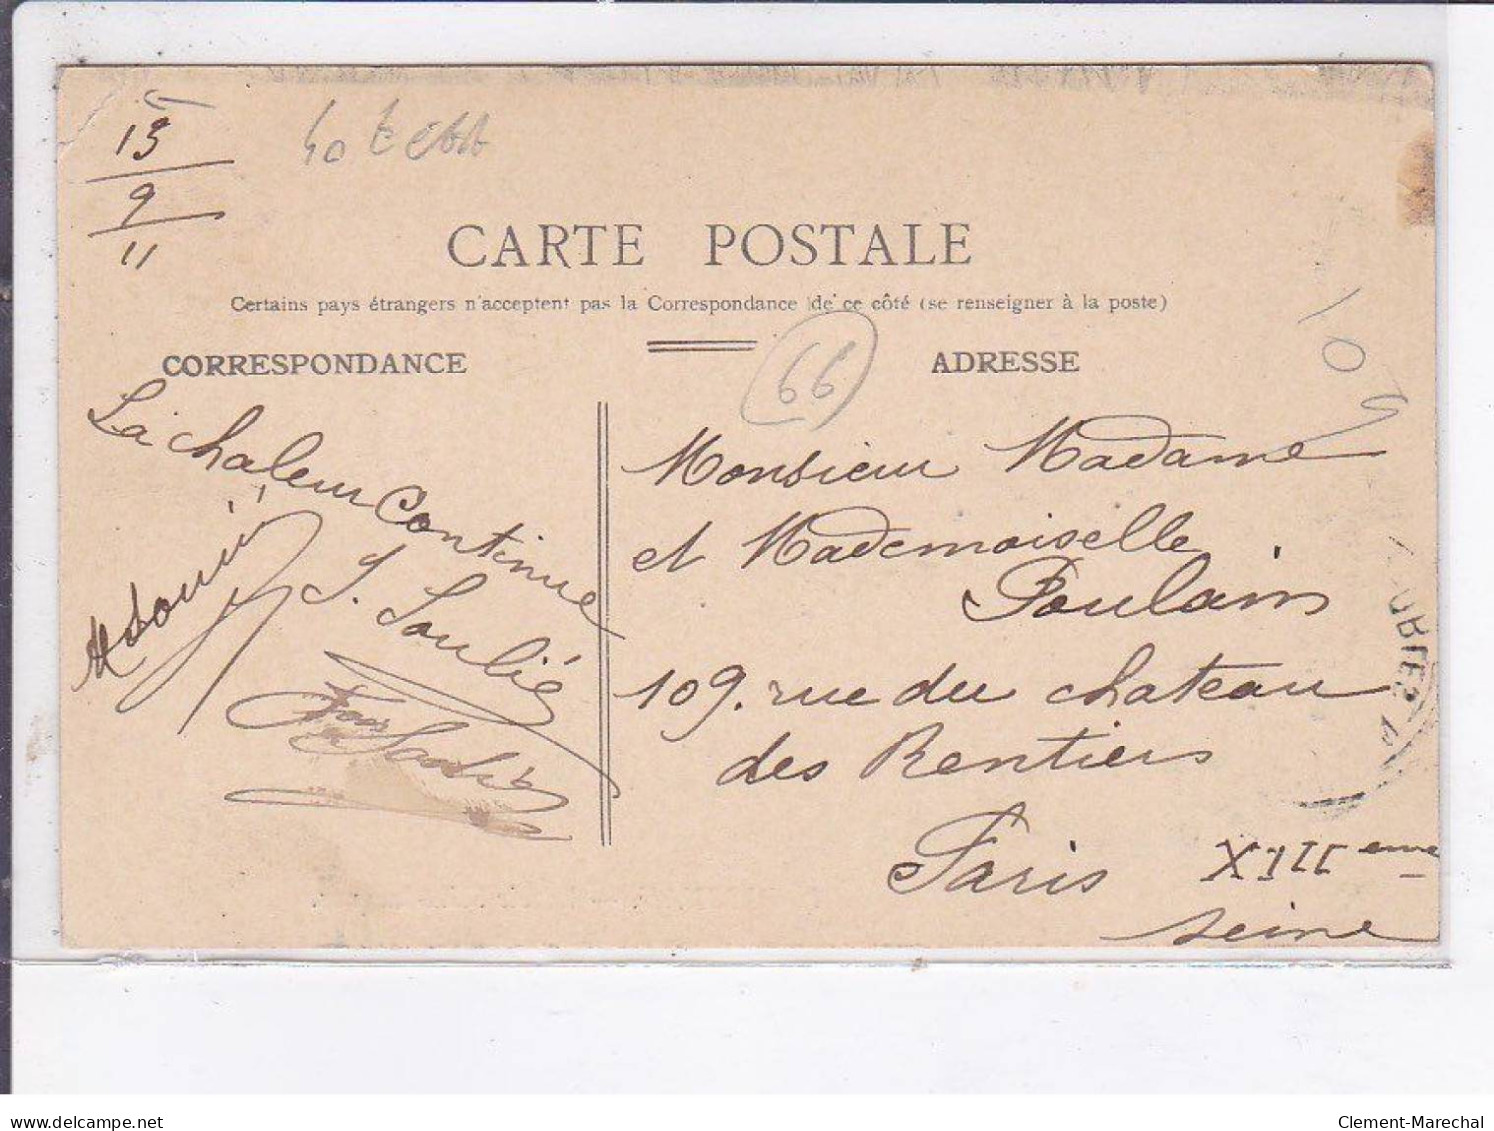 13
9
11
CARTE POSTALE
Certains pays étrangers n'acceptent pas la Correspondance de ce côté (se renseigner à la poste)
CORRESPONDANCE
ADRESSE
66
La chaleur continue
S. Soulié
Monsieur Madame
et Mademoiselle
Poulain
109. rue du chateau
des Rentiers
Paris XIIIeme
Seine
delcampe.net
Clement-Marechal